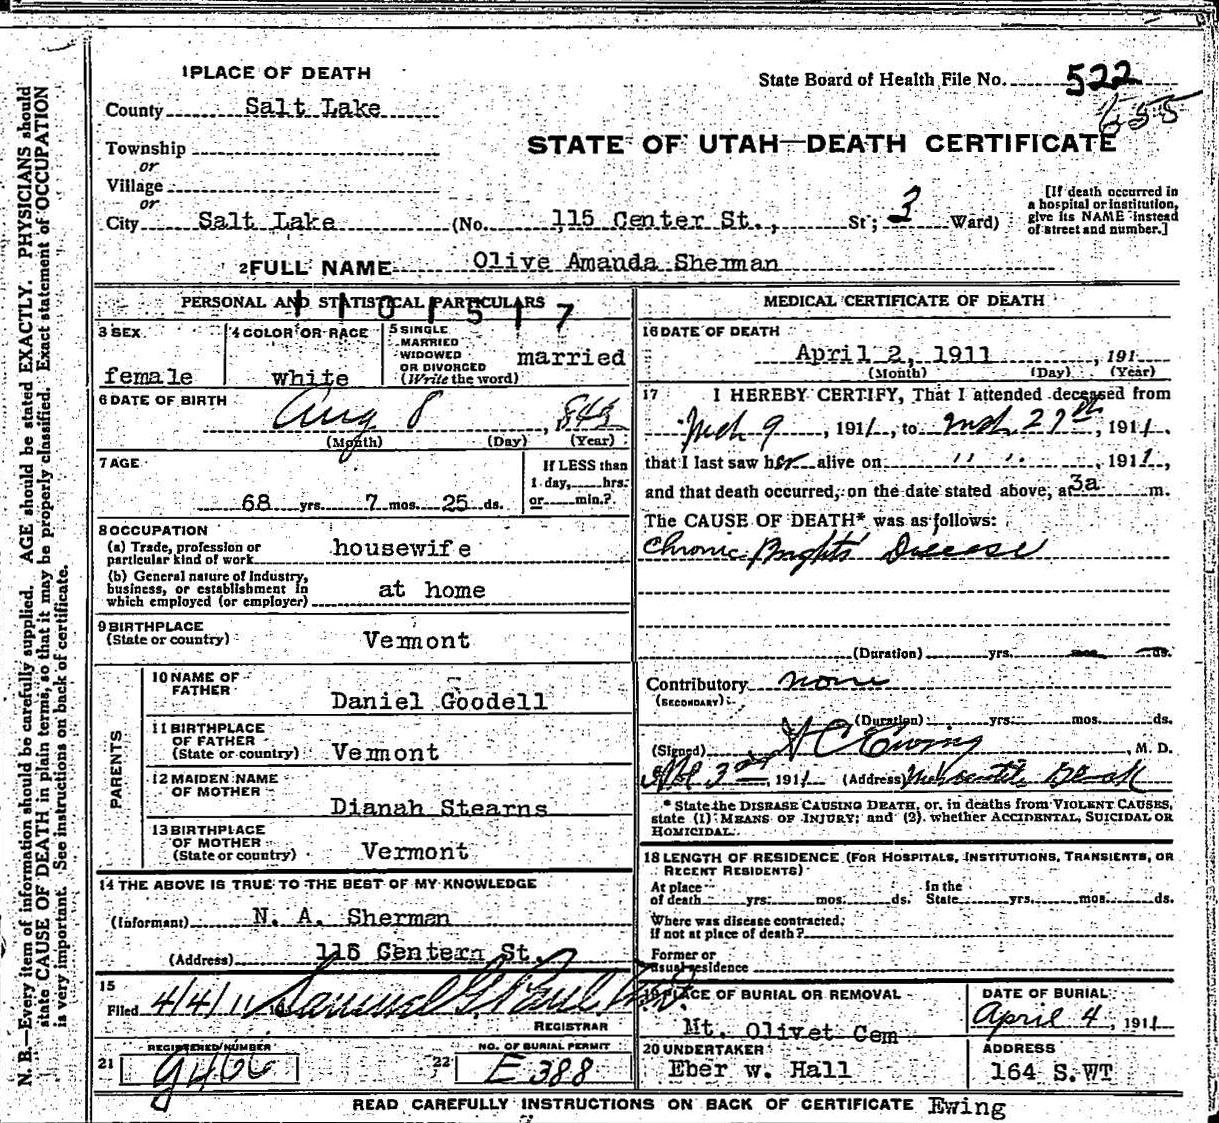 1 PLACE OF DEATH
State Board of Health File No. 522
655
County Salt Lake
STATE OF UTAH—DEATH CERTIFICATE
Township
or
Village
or
City Salt Lake (No. 115 Center St., St; 3 Ward)
[If death occurred in a hospital or institution, give its NAME instead of street and number.]
2 FULL NAME Olive Amanda Sherman
PERSONAL AND STATISTICAL PARTICULARS
1101517
3 SEX
female
4 COLOR OR RACE
white
5 SINGLE
MARRIED
WIDOWED
OR DIVORCED
(Write the word)
married
6 DATE OF BIRTH
Aug 8, 843
(Month) (Day) (Year)
7 AGE
68 yrs. 7 mos. 25 ds.
If LESS than
1 day, hrs.
or min.?
8 OCCUPATION
(a) Trade, profession or
particular kind of work housewife
(b) General nature of industry,
business, or establishment in
which employed (or employer) at home
9 BIRTHPLACE
(State or country) Vermont
PARENTS
10 NAME OF
FATHER Daniel Goodell
11 BIRTHPLACE
OF FATHER
(State or country) Vermont
12 MAIDEN NAME
OF MOTHER
Dianah Stearns
13 BIRTHPLACE
OF MOTHER
(State or country) Vermont
14 THE ABOVE IS TRUE TO THE BEST OF MY KNOWLEDGE
(Informant) N. A. Sherman
(Address) 115 Centern St.
15
Filed 4/4/11 Samuel G. Paul
REGISTRAR
21 REGISTERED NUMBER
g466
22 NO. OF BURIAL PERMIT
E 388
MEDICAL CERTIFICATE OF DEATH
16 DATE OF DEATH
April 2, 1911, 191
(Month) (Day) (Year)
17 I HEREBY CERTIFY, That I attended deceased from
Mch 9, 1911, to Mch 27th, 1911,
that I last saw her alive on " ", 1911,
and that death occurred, on the date stated above, at 3a m.
The CAUSE OF DEATH* was as follows:
Chronic Brights' Disease
(Duration) yrs. mos. ds.
Contributory none
(SECONDARY)
(Duration) yrs. mos. ds.
(Signed) H C Ewing, M. D.
3rd, 1911 (Address) Mercantile Block
* State the DISEASE CAUSING DEATH, or, in deaths from VIOLENT CAUSES,
state (1) MEANS OF INJURY; and (2) whether ACCIDENTAL, SUICIDAL OR
HOMICIDAL.
18 LENGTH OF RESIDENCE (FOR HOSPITALS, INSTITUTIONS, TRANSIENTS, OR
RECENT RESIDENTS)
At place
of death yrs. mos. ds. In the State yrs. mos. ds.
Where was disease contracted,
if not at place of death?
Former or
usual residence
19 PLACE OF BURIAL OR REMOVAL
Mt. Olivet Cem
DATE OF BURIAL
April 4, 1911
20 UNDERTAKER
Eber w. Hall
ADDRESS
164 S.WT
READ CAREFULLY INSTRUCTIONS ON BACK OF CERTIFICATE Ewing
N. B.—Every item of information should be carefully supplied. AGE should be stated EXACTLY. PHYSICIANS should
state CAUSE OF DEATH in plain terms, so that it may be properly classified. Exact statement of OCCUPATION
is very important. See instructions on back of certificate.